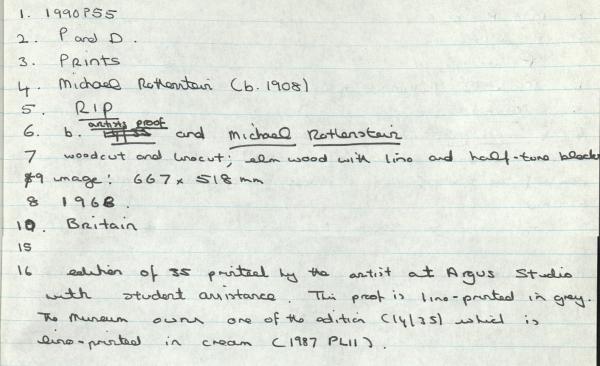 1. 1990P55
2. P and D.
3. Prints
4. Michael Rothenstein (b. 1908)
5. RIP
artists proof
6. b. and Michael Rothenstein
7 woodcut and linocut; elm wood with lino and half-tone blocks
9 image: 667 x 518 mm
8 1968.
10. Britain
15
16 edition of 35 printed by the artist at Argus Studio
with student assistance. This proof is lino-printed in grey.
The Museum owns one of the edition (14/35) which is
lino-printed in cream (1987 PL11).